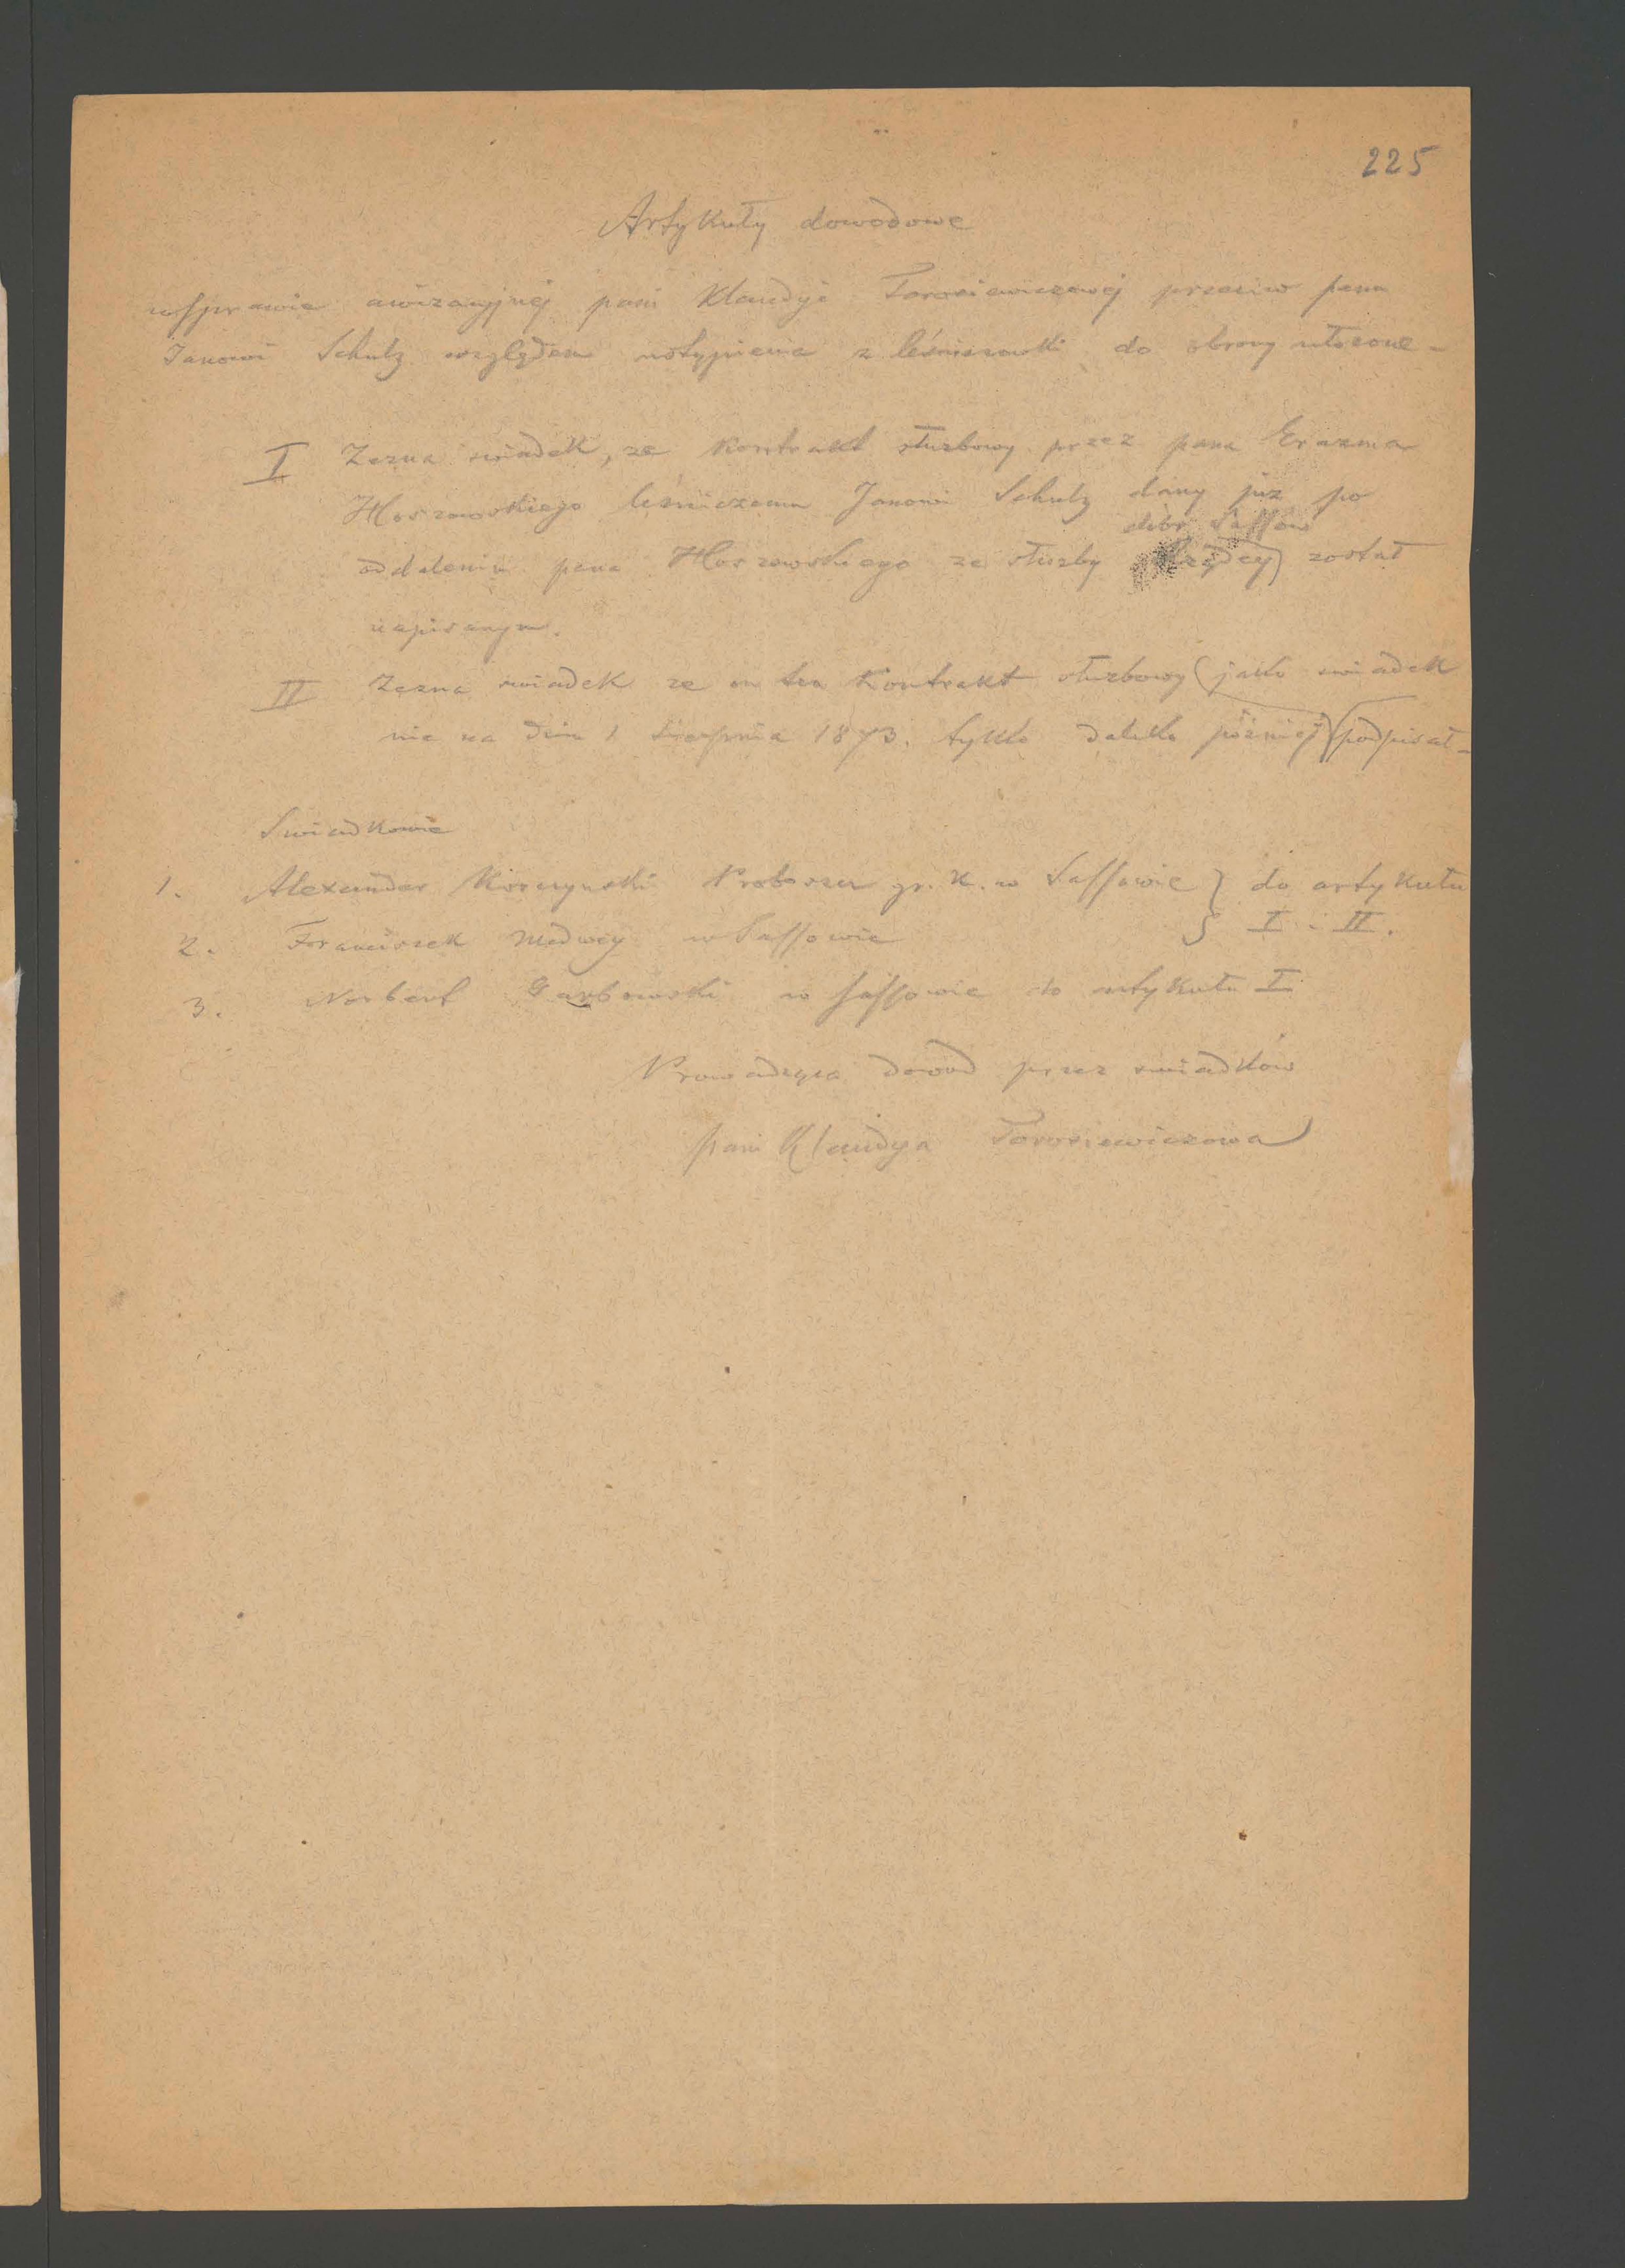 225
Artykuły dowodowe
w sprawie awizacyjnej pani Klaudyi Torosiewiczowej przeciw panu
Janowi Schulz względem ustąpienia z leśniczowki do obrony ułożone -
I Zezna swiadek, ze Kontrakt służbowy przez pana Erazma
Hoszowskiego leśniczemu Janowi Schulz dany już po
dóbr Sassow
oddaleniu pana Hoszowskiego ze służby rządcy został
napisanym.
II Zezna swiadek ze on ten Kontrakt służbowy (jako swiadek
nie na dniu 1 Sierpnia 1873. tylko daleko póżniej) podpisał -
Swiadkowie
1. Alexander Proboszcz gr. K. w Sassowie } do artykułu
2. Franciszek w Sassowie } I. II.
3. Norbert Garbowski w Sassowie do artykułu I
Prowadząca dowod przez swiadków
pani Klaudya Torosiewiczowa